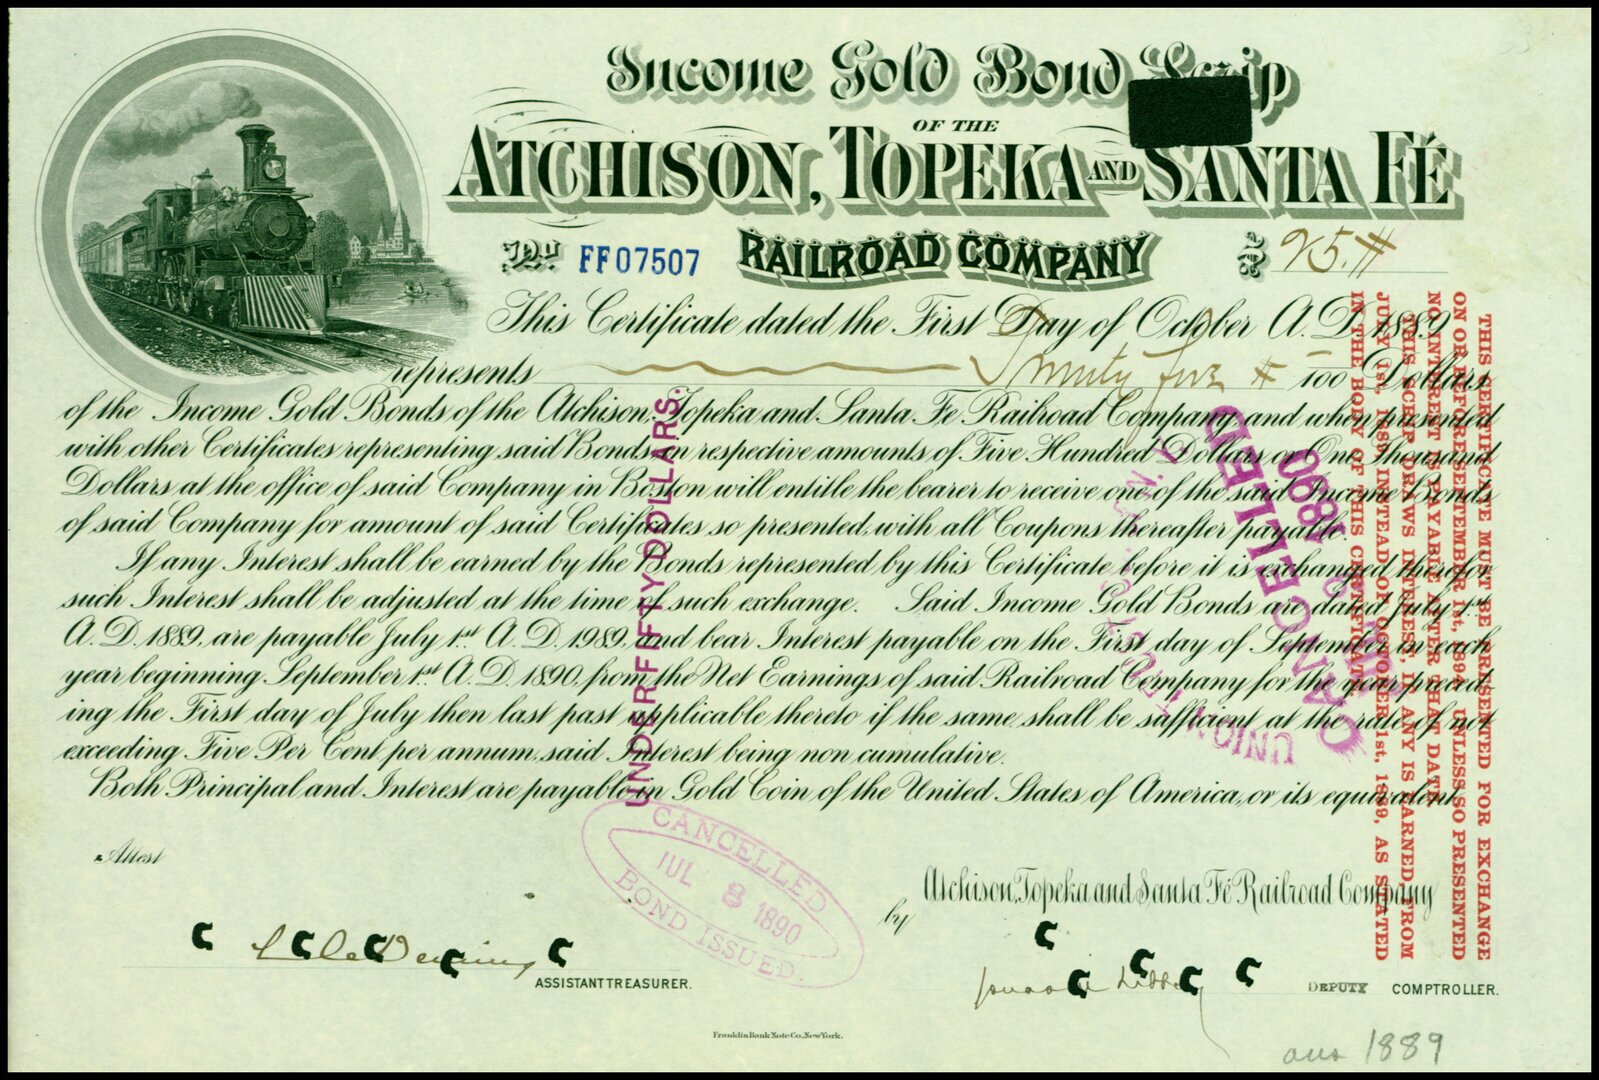 Income Gold Bond Scrip
OF THE
ATCHISON, TOPEKA AND SANTA FÉ
RAILROAD COMPANY
No. FF07507
$ 25.
This Certificate dated the First Day of October A.D. 1889
represents Twenty five 100 Dollars
of the Income Gold Bonds of the Atchison, Topeka and Santa Fe Railroad Company and when presented
with other Certificates representing said Bonds in respective amounts of Five Hundred Dollars or One Thousand
Dollars at the office of said Company in Boston will entitle the bearer to receive one of the said Income Bonds
of said Company for amount of said Certificates so presented, with all Coupons thereafter payable.
If any Interest shall be earned by the Bonds represented by this Certificate before it is exchanged therefor
such Interest shall be adjusted at the time of such exchange. Said Income Gold Bonds are dated July 1st
A.D. 1889, are payable July 1st A.D. 1989, and bear Interest payable on the First day of September in each
year beginning September 1st A.D. 1890, from the Net Earnings of said Railroad Company for the year preced-
ing the First day of July then last past applicable thereto if the same shall be sufficient at the rate of not
exceeding Five Per Cent per annum, said Interest being non cumulative.
Both Principal and Interest are payable in Gold Coin of the United States of America, or its equivalent
THIS CERTIFICATE MUST BE PRESENTED FOR EXCHANGE
ON OR BEFORE SEPTEMBER 1st, 1894. UNLESS SO PRESENTED
NO INTEREST IS PAYABLE AFTER THAT DATE
THIS SCRIP DRAWS INTEREST, IF ANY IS EARNED, FROM
JULY 1st, 1889, INSTEAD OF OCTOBER 1st, 1889, AS STATED
IN THE BODY OF THIS CERTIFICATE.
UNDER FIFTY DOLLARS.
CANCELLED
1890
UNION
CANCELLED
JUL 8 1890
BOND ISSUED.
Attest
ASSISTANT TREASURER.
Atchison, Topeka and Santa Fé Railroad Company
by
DEPUTY COMPTROLLER.
Franklin Bank Note Co., New York.
1889